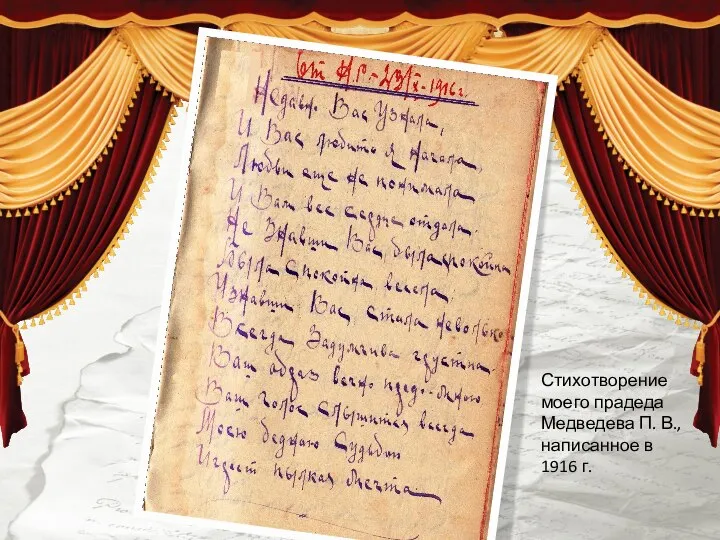 От Н.Р. - 23/X - 1916 г.
Недавно Вас узнала,
И Вас любить я начала,
Любви еще не понимала
И Вам все сердце отдала.
Не знавши Вас, была покойна
Была спокойна весела,
Узнавши Вас, стала невольно
Всегда задумчива грустна.
Ваш образ вечно предо мною
Ваш голос слышится всегда
Моею бедною судьбой
Играет пылкая мечта
Стихотворение
моего прадеда
Медведева П. В.,
написанное в
1916 г.